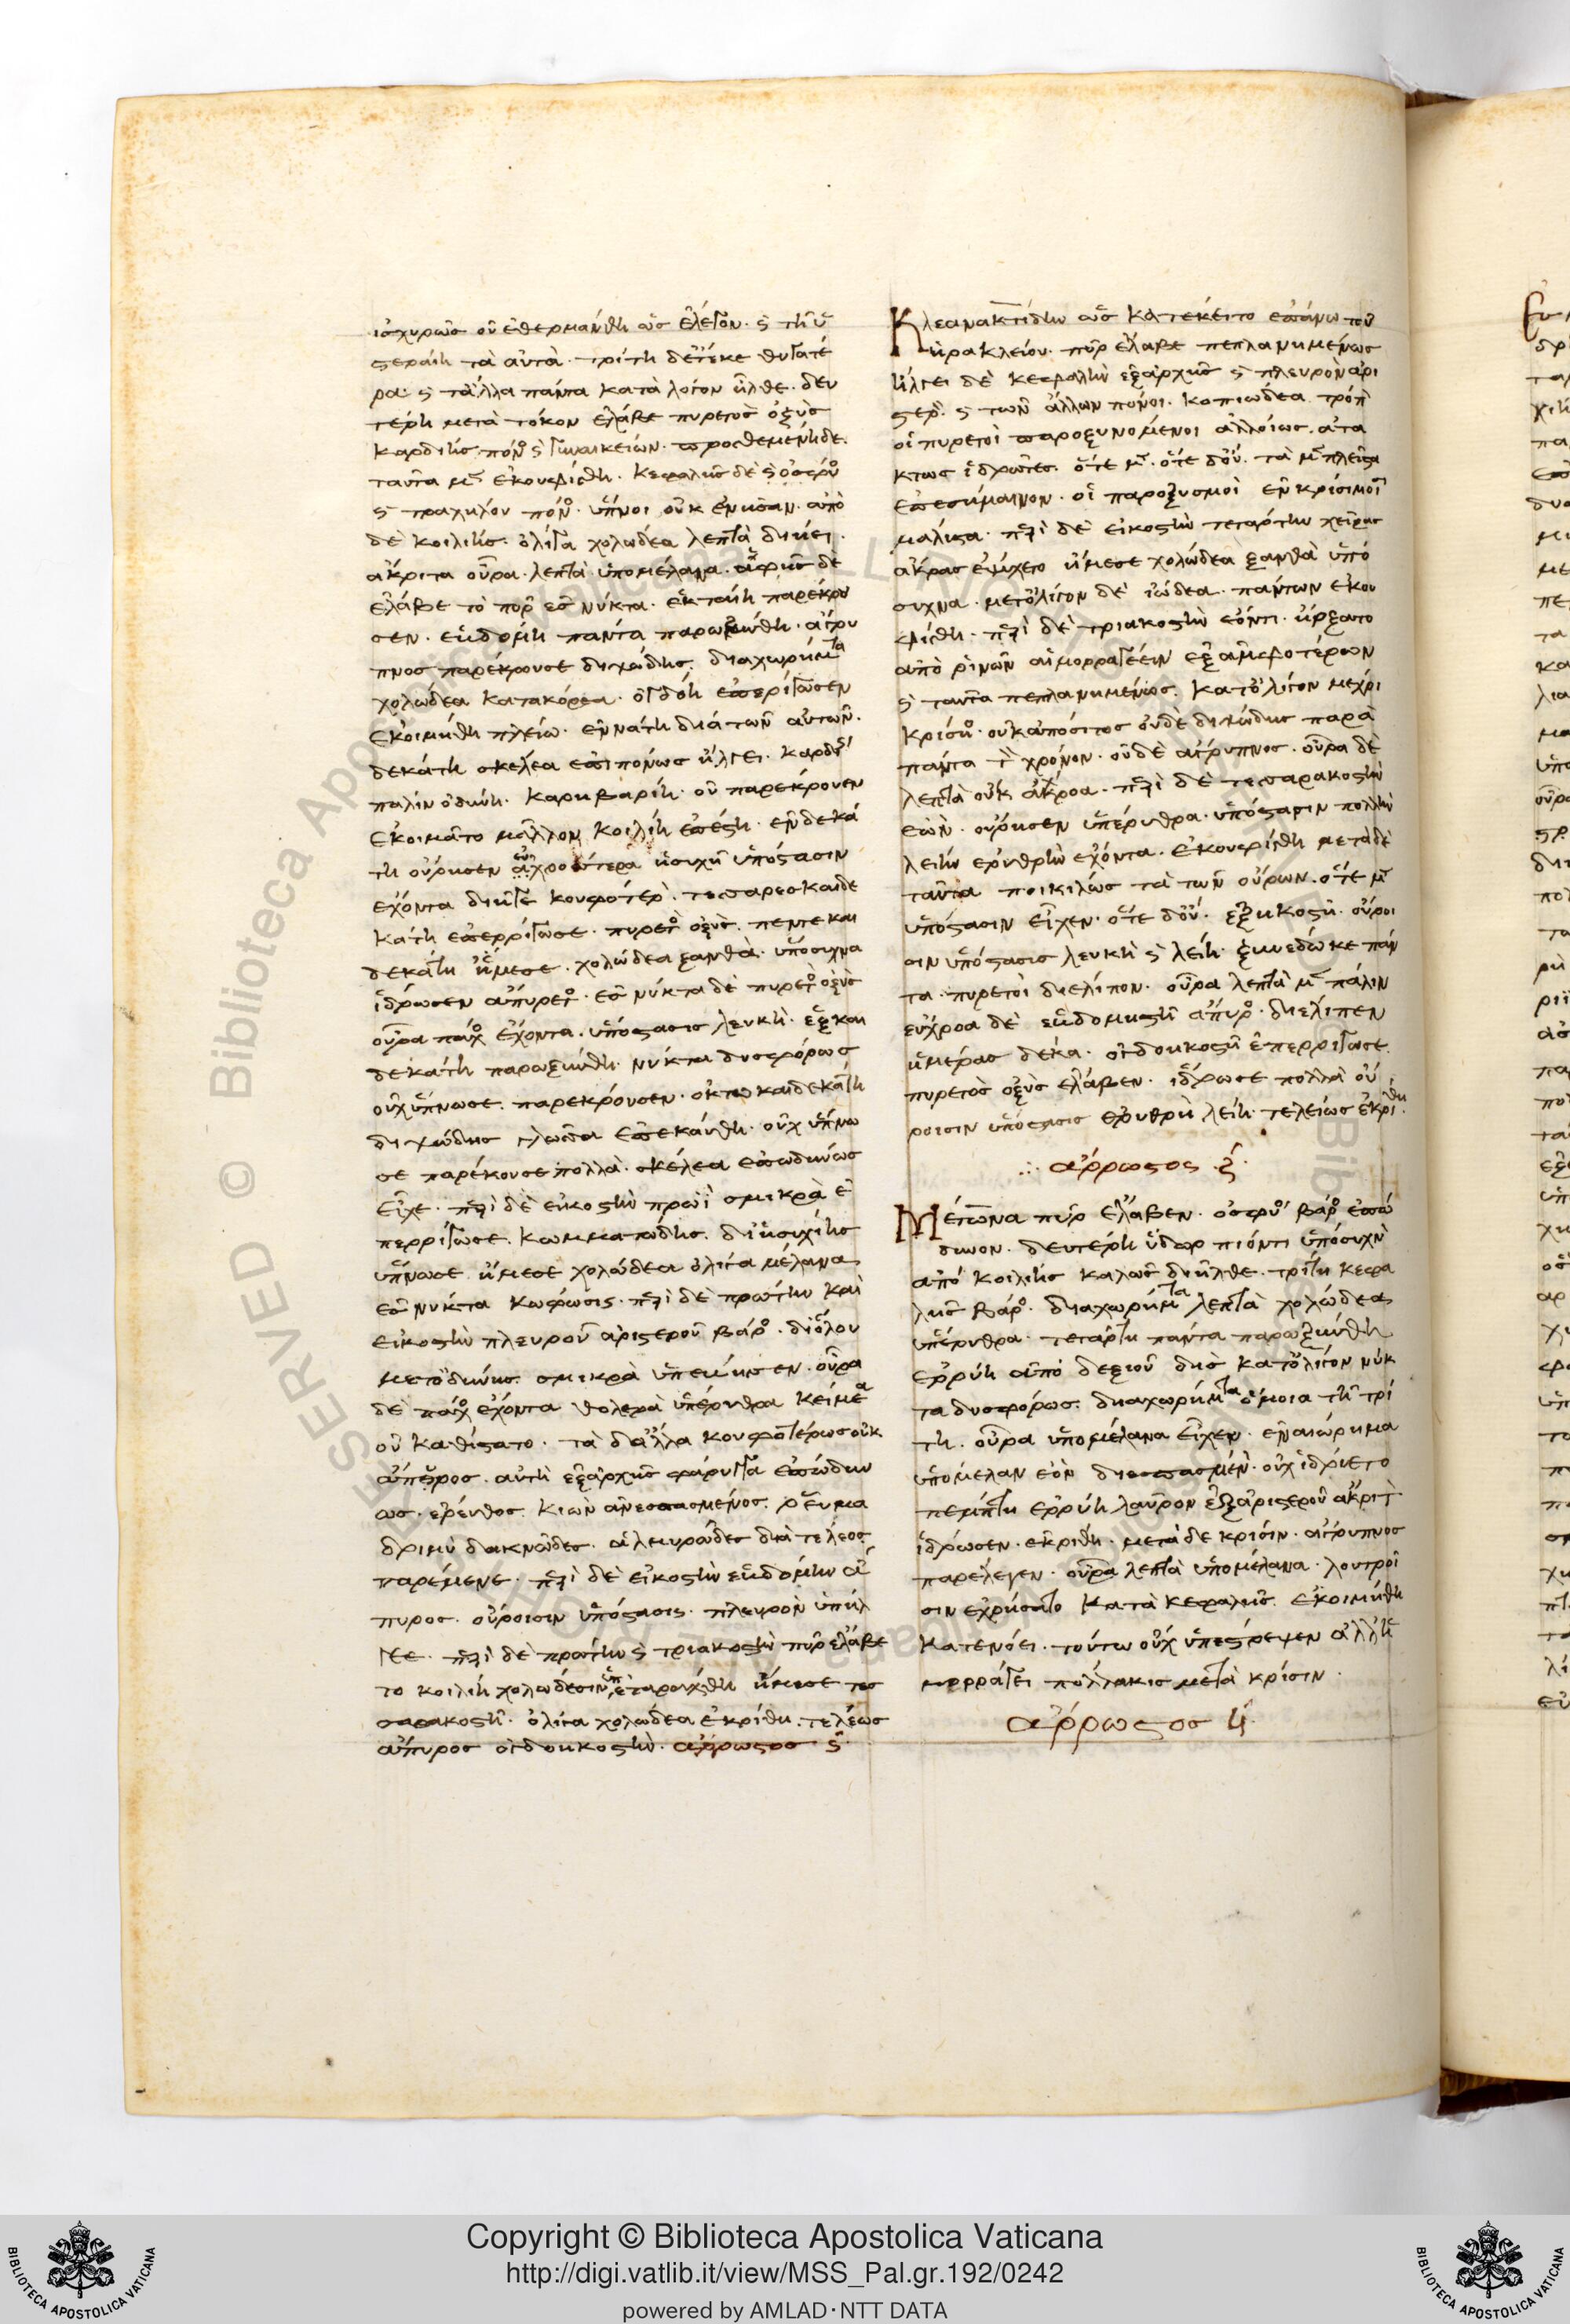 ἰσχυρῶς οὐ ἐθερμάνθη ὡς ἔλεγον. ϛ τῇ ὑ
στεραίη τὰ αὐτὰ. τρίτη δ' ἔτεκε θυγατέ
ρα. ϛ τἄλλα πάντα κατὰ λόγον ἦλθε. δευ
τέρη μετὰ τόκον ἔλαβε πυρετὸς ὀξὺς
καρδίης πόνος ϛ γυναικείων. προσθεμένη δὲ
ταῦτα μὲν ἐκουφίσθη. κεφαλῆς δὲ ϛ ὀσφύος
ϛ τραχήλου πόνος. ὕπνοι οὐκ ἐνῆσαν. ἀπὸ
δὲ κοιλίης ὀλίγα χολώδεα λεπτὰ διῄει.
ἄκριτα οὖρα. λεπτὰ ὑπομέλανα. ἀφ' ἧς δὲ
ἔλαβε τὸ πῦρ ἐς νύκτα. ἑκταίη παρέκρου
σεν. ἑβδόμη πάντα παρωξύνθη. ἄγρυ
πνος παρέκρουσε διψώδης. διαχωρήματα
χολώδεα κατακόρεα. ὀγδόη ἐπερίγωσεν
ἐκοιμήθη πλείω. ἐννάτη διὰ τῶν αὐτῶν.
δεκάτη σκέλεα ἐπιπόνως ἤλγει. καρδίης
πάλιν ὀδύνη. καρηβαρίη. οὐ παρέκρουεν
ἐκοιμᾶτο μᾶλλον κοιλίη ἐπέστη. ἑνδεκά
τη οὔρησεν εὐχροώτερα ἡσυχῇ ὑπόστασιν
ἔχοντα διῆγε κουφότερον. τεσσαρεσκαιδε
κάτη ἐπερρίγωσε. πυρετὸς ὀξὺς. πεντεκαι
δεκάτη ἤμεσε. χολώδεα ξανθὰ. ὑπόσυχνα
ἵδρωσεν ἀπύρετος. ἐς νύκτα δὲ πυρετὸς ὀξὺς
οὖρα πάχος ἔχοντα. ὑπόστασις λευκὴ. ἑξκαι
δεκάτη παρωξύνθη. νύκτα δυσφόρως
οὐχ ὕπνωσε. παρέκρουσεν. ὀκτωκαιδεκάτη
διψώδης γλῶσσα ἐπεκαύθη. οὐχ ὕπνω
σε παρέκουσε πολλὰ. σκέλεα ἐπωδύνως
εἶχε. περὶ δὲ εἰκοστὴν πρωῒ σμικρὰ ἐ
περρίγωσε. κωμματώδης. δι' ἡσυχίης
ὕπνωσε ἤμεσε χολώδεα ὀλίγα μέλανα
ἐς νύκτα κώφωσις. περὶ δὲ πρώτην καὶ
εἰκοστὴν πλευροῦ ἀριστεροῦ βάρος. δι' ὅλου
μετ' ὀδύνης. σμικρὰ ὑπέβησσεν. οὖρα
δὲ πάχος ἔχοντα θολερὰ ὑπέρυθρα κείμενα
οὐ καθίστατο. τὰ δ' ἄλλα κουφοτέρως οὐκ
ἄπυρος. αὐτὴ ἐξ ἀρχῆς φάρυγγα ἐπώδυν
ως. ἔρευθος. κιὼν ἀνεσπασμένος. ῥεῦμα
δριμὺ δακνῶδες. ἁλμυρῶδες διὰ τέλεος
παρέμενε. περὶ δὲ εἰκοστὴν ἑβδόμην ἄ
πυρος. οὔροισιν ὑπόστασις. πλευρὸν ὑπήλ
γεε. περὶ δὲ πρώτην ϛ τριακοστὴν πῦρ ἔλαβε
το κοιλίη χολώδεσιν ὑπεταράχθη ἤμεσε τεσ
σαρακοστῇ. ὀλίγα χολώδεα ἐκρίθη. τελέως
ἄπυρος ὀγδοηκοστὴν. ἄρρωστος ϛ.
Κλεανακτίδην ὡς κατέκειτο ἐπάνω τοῦ
ἡρακλείου. πῦρ ἔλαβε πεπλανημένως
ἤλγει δὲ κεφαλὴν ἐξ ἀρχῆς ϛ πλευρὸν ἀρι
στερὸν. ϛ τῶν ἄλλων πόνοι. κοπιώδεα τρόπον
οἱ πυρετοὶ παροξυνόμενοι ἀλλοίως. ἀτά
κτως ἱδρῶτες. ὅτε μὲν. ὅτε δ' οὔ. τὰ μὲν πλεῖστα
ἐπεσήμαινον. οἱ παροξυσμοὶ ἐν κρισίμοις
μάλιστα. περὶ δὲ εἰκοστὴν τετάρτην χεῖρας
ἄκρας ἐψύχετο ἤμεσε χολώδεα ξανθὰ ὑπό
συχνα. μετ' ὀλίγον δὲ ἰώδεα. πάντων ἐκου
φίσθη. περὶ δὲ τριακοστὴν ἐόντι. ἤρξατο
ἀπὸ ῥινῶν αἱμορραγέειν ἐξ ἀμφοτέρων
ϛ ταῦτα πεπλανημένως. κατ' ὀλίγον μέχρι
κρίσιος. οὐκ ἀπόσιτος οὐδὲ διψώδης παρὰ
πάντα τὸν χρόνον. οὐδὲ ἄγρυπνος. οὖρα δὲ
λεπτὰ οὐκ ἄχροα. περὶ δὲ τεσσαρακοστὴν
ἐὼν. οὔρησεν ὑπέρυθρα. ὑπόστασιν πολλὴν
λείην ἐρυθρὴν ἔχοντα. ἐκουφίσθη μετὰ δὲ
ταῦτα ποικίλως τὰ τῶν οὔρων. ὅτε μὲν
ὑπόστασιν εἶχεν. ὅτε δ' οὔ. ἑξηκοστῇ. οὔροι
σιν ὑπόστασις λευκὴ ϛ λείη. ξυνεδώκε πάν
τα. πυρετοὶ διέλιπον. οὖρα λεπτὰ μὲν πάλιν
εὔχροα δὲ ἑβδομηστῇ ἄπυρος. διέλιπεν
ἡμέρας δέκα. ὀγδοηκοστῇ ἐπερρίγωσε
πυρετὸς ὀξὺς ἔλαβεν. ἵδρωσε πολλὰ οὔ
ροισιν ὑπόστασις ἐρυθρὴ λείη. τελείως ἐκρίθη.
∴ ἄρρωστος ζ.
Μέτωνα πῦρ ἔλαβεν. ὀσφύος βάρος ἐπώ
δυνον. δευτέρη ὕδωρ πιόντι ὑπόσυχνον
ἀπὸ κοιλίης καλῶς διῆλθε. τρίτη κεφα
λῆς βάρος. διαχωρήματα λεπτὰ χολώδεα
ὑπέρυθρα. τετάρτη πάντα παρωξύνθη
ἐρρύη ἀπὸ δεξιοῦ δὶς κατ' ὀλίγον νύκ
τα δυσφόρως. διαχωρήματα ὅμοια τῇ τρί
τη. οὖρα ὑπομέλανα εἶχεν. ἐναιώρημα
ὑπόμελαν ἐὸν διεσπασμένον. οὐχ ἱδρύετο
πέμπτη ἐρρύη λαῦρον ἐξ ἀριστεροῦ ἄκρητον
ἵδρωσεν. ἐκρίθη. μετὰ δὲ κρίσιν. ἄγρυπνος
παρέλεγεν. οὖρα λεπτὰ ὑπομέλανα. λουτροῖ
σιν ἐχρήσατο κατὰ κεφαλῆς. ἐκοιμήθη
κατενόει. τούτω οὐχ ὑπέστρεψεν ἀλλ' ᾑ
μορράγει πολλάκις μετὰ κρίσιν.
ἄρρωστος η.
Copyright © Biblioteca Apostolica Vaticana
http://digi.vatlib.it/view/MSS_Pal.gr.192/0242
powered by AMLAD·NTT DATA
BIBLIOTECA APOSTOLICA VATICANA
BIBLIOTECA APOSTOLICA VATICANA